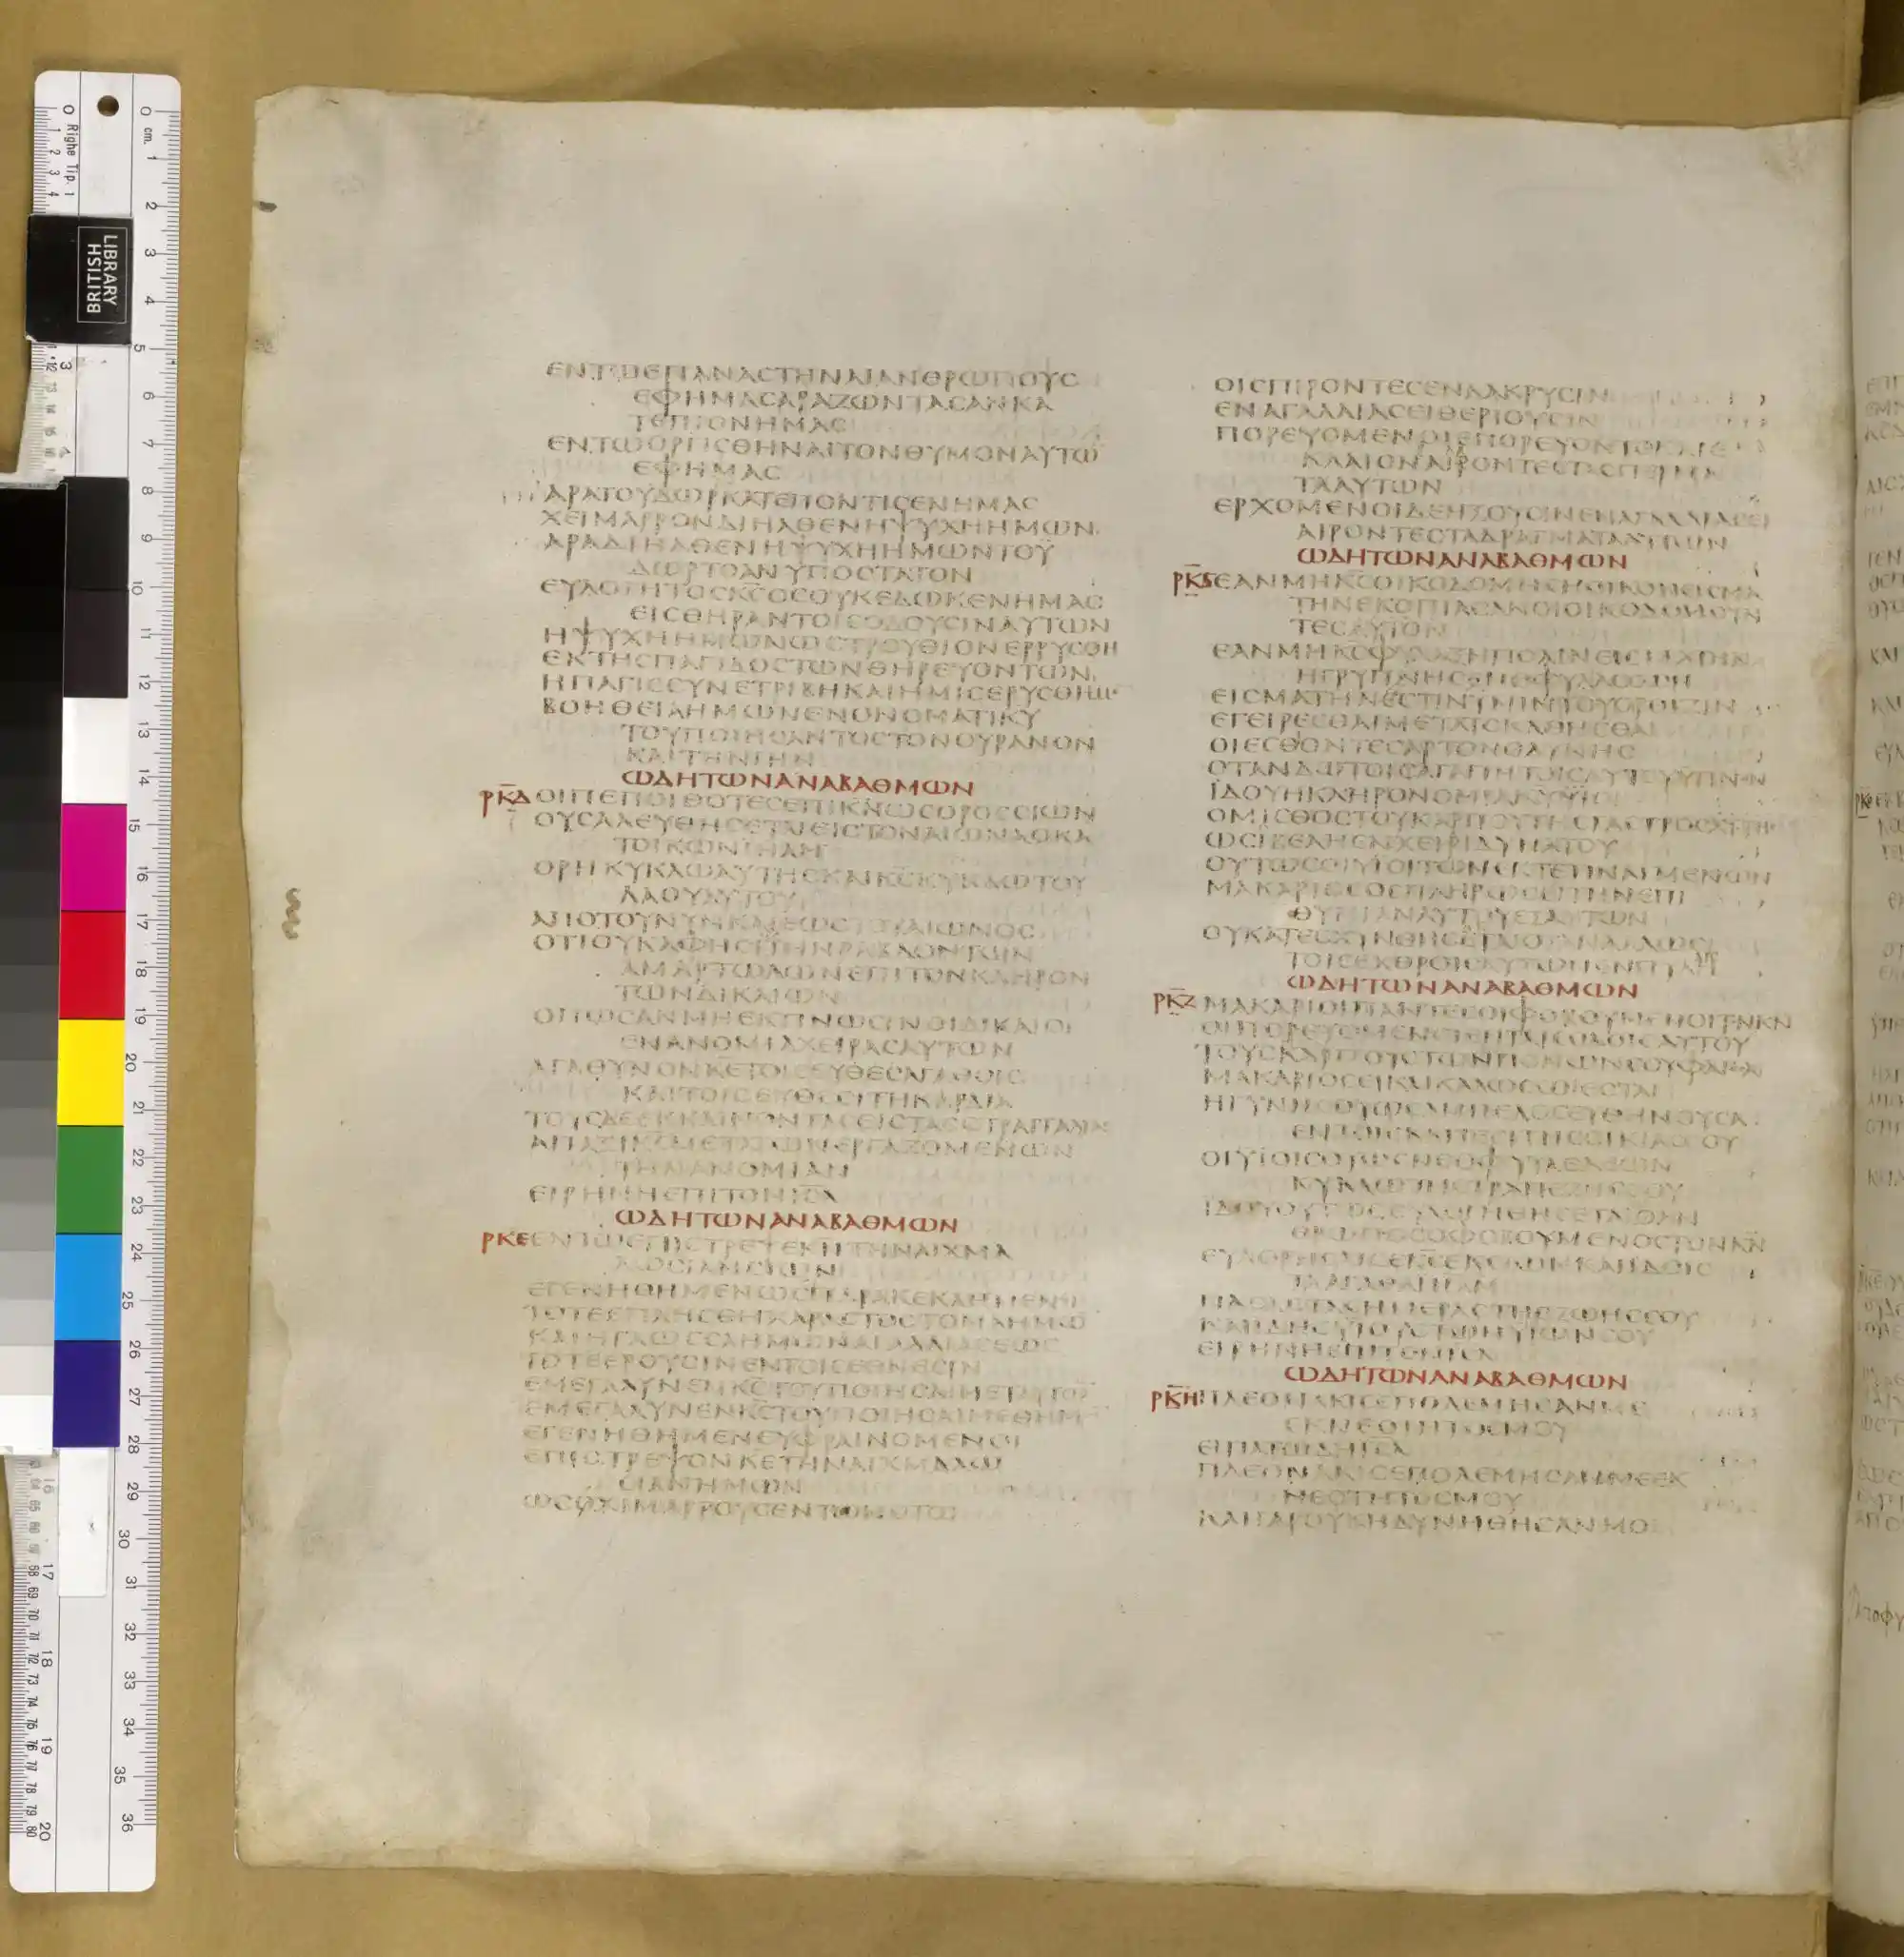 ΕΝΤΩΕΠΑΝΑCΤΗΝΑΙΑΝΘΡΩΠΟΥC
ΕΦΗΜΑCΑΡΑΖΩΝΤΑCΑΝΚΑ
ΤΕΠΙΟΝΗΜΑC
ΕΝΤΩΟΡΓΙCΘΗΝΑΙΤΟΝΘΥΜΟΝΑΥΤΩ
ΕΦΗΜΑC
ΑΡΑΤΟΥΔΩΡΚΑΤΕΠΟΝΤΙCΕΝΗΜΑC
ΧΕΙΜΑΡΡΟΝΔΙΗΛΘΕΝΗΨΥΧΗΗΜΩΝ
ΑΡΑΔΙΗΛΘΕΝΗΨΥΧΗΗΜΩΝΤΟΥ
ΔΩΡΤΟΑΝΥΠΟCΤΑΤΟΝ
ΕΥΛΟΓΗΤΟCΚCΟCΟΥΚΕΔΩΚΕΝΗΜΑC
ΕΙCΘΗΡΑΝΤΟΙCΟΔΟΥCΙΝΑΥΤΩΝ
ΗΨΥΧΗΗΜΩΝΩCΤΡΟΥΘΙΟΝΕΡΡΥCΘΗ
ΕΚΤΗCΠΑΓΙΔΟCΤΩΝΘΗΡΕΥΟΝΤΩΝ
ΗΠΑΓΙCCΥΝΕΤΡΙΒΗΚΑΙΗΜΙCΕΡΥCΘΗΜ
ΒΟΗΘΕΙΑΗΜΩΝΕΝΟΝΟΜΑΤΙΚΥ
ΤΟΥΠΟΙΗCΑΝΤΟCΤΟΝΟΥΡΑΝΟΝ
ΚΑΙΤΗΝΓΗΝ
ΩΔΗΤΩΝΑΝΑΒΑΘΜΩΝ
ΡΚΔ ΟΙΠΕΠΟΙΘΟΤΕCΕΠΙΚΝΩCΟΡΟCCΙΩΝ
ΟΥCΑΛΕΥΘΗCΕΤΑΙΕΙCΤΟΝΑΙΩΝΑΟΚΑ
ΤΟΙΚΩΝΙΗΛΗΜ
ΟΡΗΚΥΚΛΩΑΥΤΗCΚΑΙΚCΚΥΚΛΩΤΟΥ
ΛΑΟΥΑΥΤΟΥ
ΑΠΟΤΟΥΝΥΝΚΑΙΕΩCΤΟΥΑΙΩΝΟC
ΟΤΙΟΥΚΑΦΗCΙΤΗΝΡΑΒΔΟΝΤΩΝ
ΑΜΑΡΤΩΛΩΝΕΠΙΤΟΝΚΛΗΡΟΝ
ΤΩΝΔΙΚΑΙΩΝ
ΟΠΩCΑΝΜΗΕΚΤΙΝΩCΙΝΟΙΔΙΚΑΙΟΙ
ΕΝΑΝΟΜΙΑΧΕΙΡΑCΑΥΤΩΝ
ΑΓΑΘΥΝΟΝΚΕΤΟΙCΕΥΘΕCΑΓΑΘΟΙC
ΚΑΙΤΟΙCΕΥΘΕCΙΤΗΚΑΡΔΙΑ
ΤΟΥCΔΕΕΚΚΛΙΝΟΝΤΑCΕΙCΤΑCCΤΡΑΓΓΑΛΙΑC
ΑΠΑΞΙΚCΜΕΤΑΤΩΝΕΡΓΑΖΟΜΕΝΩΝ
ΤΗΝΑΝΟΜΙΑΝ
ΕΙΡΗΝΗΕΠΙΤΟΝΙCΛ
ΩΔΗΤΩΝΑΝΑΒΑΘΜΩΝ
ΡΚΕ ΕΝΤΩΕΠΙCΤΡΕΨΕΚΝΤΗΝΑΙΧΜΑ
ΛΩCΙΑΝCΙΩΝ
ΕΓΕΝΗΘΗΜΕΝΩCΠΑΡΑΚΕΚΛΗΜΕΝΟΙ
ΤΟΤΕΕΠΛΗCΘΗΧΑΡΑCΤΟCΤΟΜΑΗΜΩ
ΚΑΙΗΓΛΩCCΑΗΜΩΝΑΓΑΛΛΙΑCΕΩC
ΤΟΤΕΕΡΟΥCΙΝΕΝΤΟΙCΕΘΝΕCΙΝ
ΕΜΕΓΑΛΥΝΕΝΚCΤΟΥΠΟΙΗCΑΙΜΕΤΑΥΤΩ
ΕΜΕΓΑΛΥΝΕΝΚCΤΟΥΠΟΙΗCΑΙΜΕΘΗΜ
ΕΓΕΝΗΘΗΜΕΝΕΥΦΡΑΙΝΟΜΕΝΟΙ
ΕΠΙCΤΡΕΨΟΝΚΕΤΗΝΑΙΧΜΑΛΩ
CΙΑΝΗΜΩΝ
ΩCΟΧΙΜΑΡΡΟΥCΕΝΤΩΝΟΤΩ
ΟΙCΠΙΡΟΝΤΕCΕΝΔΑΚΡΥCΙΝ
ΕΝΑΓΑΛΛΙΑCΕΙΘΕΡΙΟΥCΙΝ
ΠΟΡΕΥΟΜΕΝΟΙΕΠΟΡΕΥΟΝΤΟΚΑΙΕ
ΚΛΑΙΟΝΑΙΡΟΝΤΕCΤΑCΠΕΡΜΑ
ΤΑΑΥΤΩΝ
ΕΡΧΟΜΕΝΟΙΔΕΗΞΟΥCΙΝΕΝΑΓΑΛΛΙΑCΕΙ
ΑΙΡΟΝΤΕCΤΑΔΡΑΓΜΑΤΑΑΥΤΩΝ
ΩΔΗΤΩΝΑΝΑΒΑΘΜΩΝ
ΡΚϚ ΕΑΝΜΗΚCΟΙΚΟΔΟΜΗCΗΟΙΚΟΝΕΙCΜΑ
ΤΗΝΕΚΟΠΙΑCΑΝΟΙΟΙΚΟΔΟΜΟΥΝ
ΤΕCΑΥΤΟΝ
ΕΑΝΜΗΚCΦΥΛΑΞΗΠΟΛΙΝΕΙCΜΑΤΗΝ
ΗΓΡΥΠΝΗCΕΝΟΦΥΛΑCCΩΝ
ΕΙCΜΑΤΗΝΕCΤΙΝΥΜΙΝΤΟΥΟΡΘΡΙΖΙΝ
ΕΓΕΙΡΕCΘΑΙΜΕΤΑΤΟΚΑΘΗCΘΑΙ
ΟΙΕCΘΟΝΤΕCΑΡΤΟΝΟΔΥΝΗC
ΟΤΑΝΔΩΤΟΙCΑΓΑΠΗΤΟΙCΑΥΤΟΥΥΠΝΟΝ
ΙΔΟΥΗΚΛΗΡΟΝΟΜΙΑΚΥΥΙΟΙ
ΟΜΙCΘΟCΤΟΥΚΑΡΠΟΥΤΗCΓΑCΤΡΟC
ΩCΙΒΕΛΗΕΝΧΕΙΡΙΔΥΝΑΤΟΥ
ΟΥΤΩCΟΙΥΙΟΙΤΩΝΕΚΤΕΤΙΝΑΓΜΕΝΩΝ
ΜΑΚΑΡΙΟCΟCΠΛΗΡΩCΕΙΤΗΝΕΠΙ
ΘΥΜΙΑΝΑΥΤΟΥΕΞΑΥΤΩΝ
ΟΥΚΑΤΕCΧΥΝΘΗCΕΤΑΙΟΤΑΝΛΑΛΩCΙ
ΤΟΙCΕΚΘΡΟΙCΑΥΤΩΝΕΝΠΥΛΗ
ΩΔΗΤΩΝΑΝΑΒΑΘΜΩΝ
ΡΚΖ ΜΑΚΑΡΙΟΙΠΑΝΤΕCΟΙΦΟΒΟΥΜΕΝΟΙΤΟΝΚΝ
ΟΙΠΟΡΕΥΟΜΕΝΟΙΕΝΤΑΙCΟΔΟΙCΑΥΤΟΥ
ΤΟΥCΚΑΡΠΟΥCΤΩΝΠΟΝΩΝCΟΥΦΑΓΕCΑΙ
ΜΑΚΑΡΙΟCΕΙΚΑΙΚΑΛΩCCΟΙΕCΤΑΙ
ΗΓΥΝΗCΟΥΩCΑΜΠΕΛΟCΕΥΘΗΝΟΥCΑ
ΕΝΤΟΙCΚΛΙΤΕCΙΤΗCΟΙΚΙΑCCΟΥ
ΟΙΥΙΟΙCΟΥΩCΝΕΟΦΥΤΑΕΛΑΙΩΝ
ΚΥΚΛΩΤΗCΤΡΑΠΕΖΗCCΟΥ
ΙΔΟΥΟΥΤΩCΕΥΛΟΓΗΘΗCΕΤΑΙΑΝ
ΘΡΩΠΟCΟΦΟΒΟΥΜΕΝΟCΤΟΝΚΝ
ΕΥΛΟΓΗCΑΙCΕΚCΕΚCΙΩΝΚΑΙΙΔΟΙC
ΤΑΑΓΑΘΑΙΗΛΜ
ΠΑCΑCΤΑCΗΜΕΡΑCΤΗCΖΩΗCCΟΥ
ΚΑΙΙΔΗCΥΙΟΥCΤΩΝΥΙΩΝCΟΥ
ΕΙΡΗΝΗΕΠΙΤΟΝΙCΛ
ΩΔΗΤΩΝΑΝΑΒΑΘΜΩΝ
ΡΚΗ ΠΛΕΟΝΑΚΙCΕΠΟΛΕΜΗCΑΝΜΕ
ΕΚΝΕΟΤΗΤΟCΜΟΥ
ΕΙΠΑΤΩΔΗΙCΛ
ΠΛΕΟΝΑΚΙCΕΠΟΛΕΜΗCΑΝΜΕΕΚ
ΝΕΟΤΗΤΟCΜΟΥ
ΚΑΙΓΑΡΟΥΚΗΔΥΝΗΘΗCΑΝΜΟΙ
LIBRARY
BRITISH